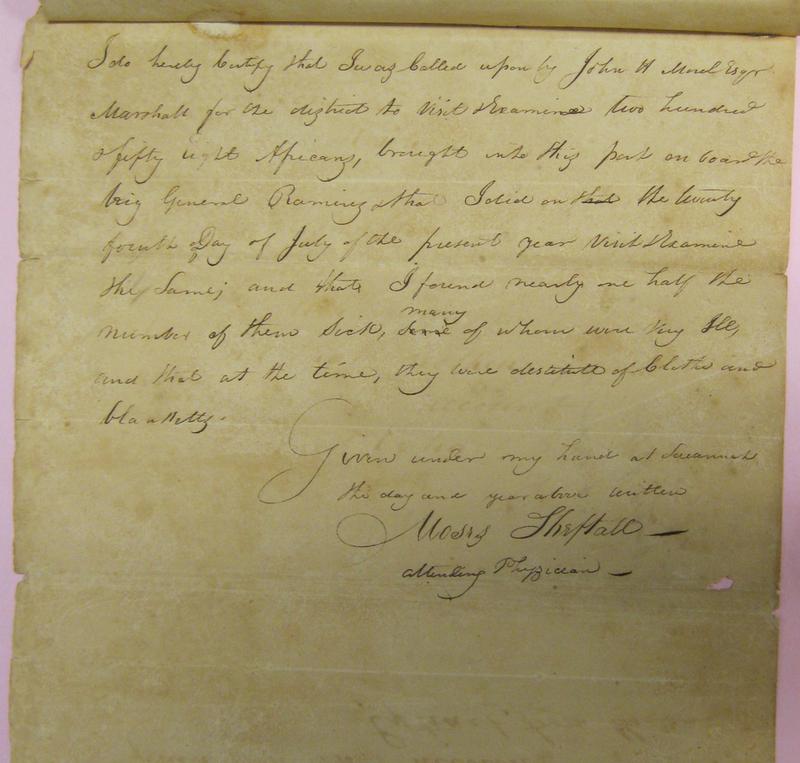 I do hereby Certify that I was Called upon by John H Morel Esqr
Marshall for the district to visit & Examine two hundred
& fifty eight Africans, brought into this port on board the
brig General Ramirez & that I did on that the twenty
fourth Day of July of the present year visit & Examine
the Same; and that I found nearly one half the
many
number of them Sick, some of whom were very Ill,
and that at the time, they were destitute of Cloths and
blanketts.
Given under my hand at Savannah
the day and year above written
Moses Sheftall
attending Physician